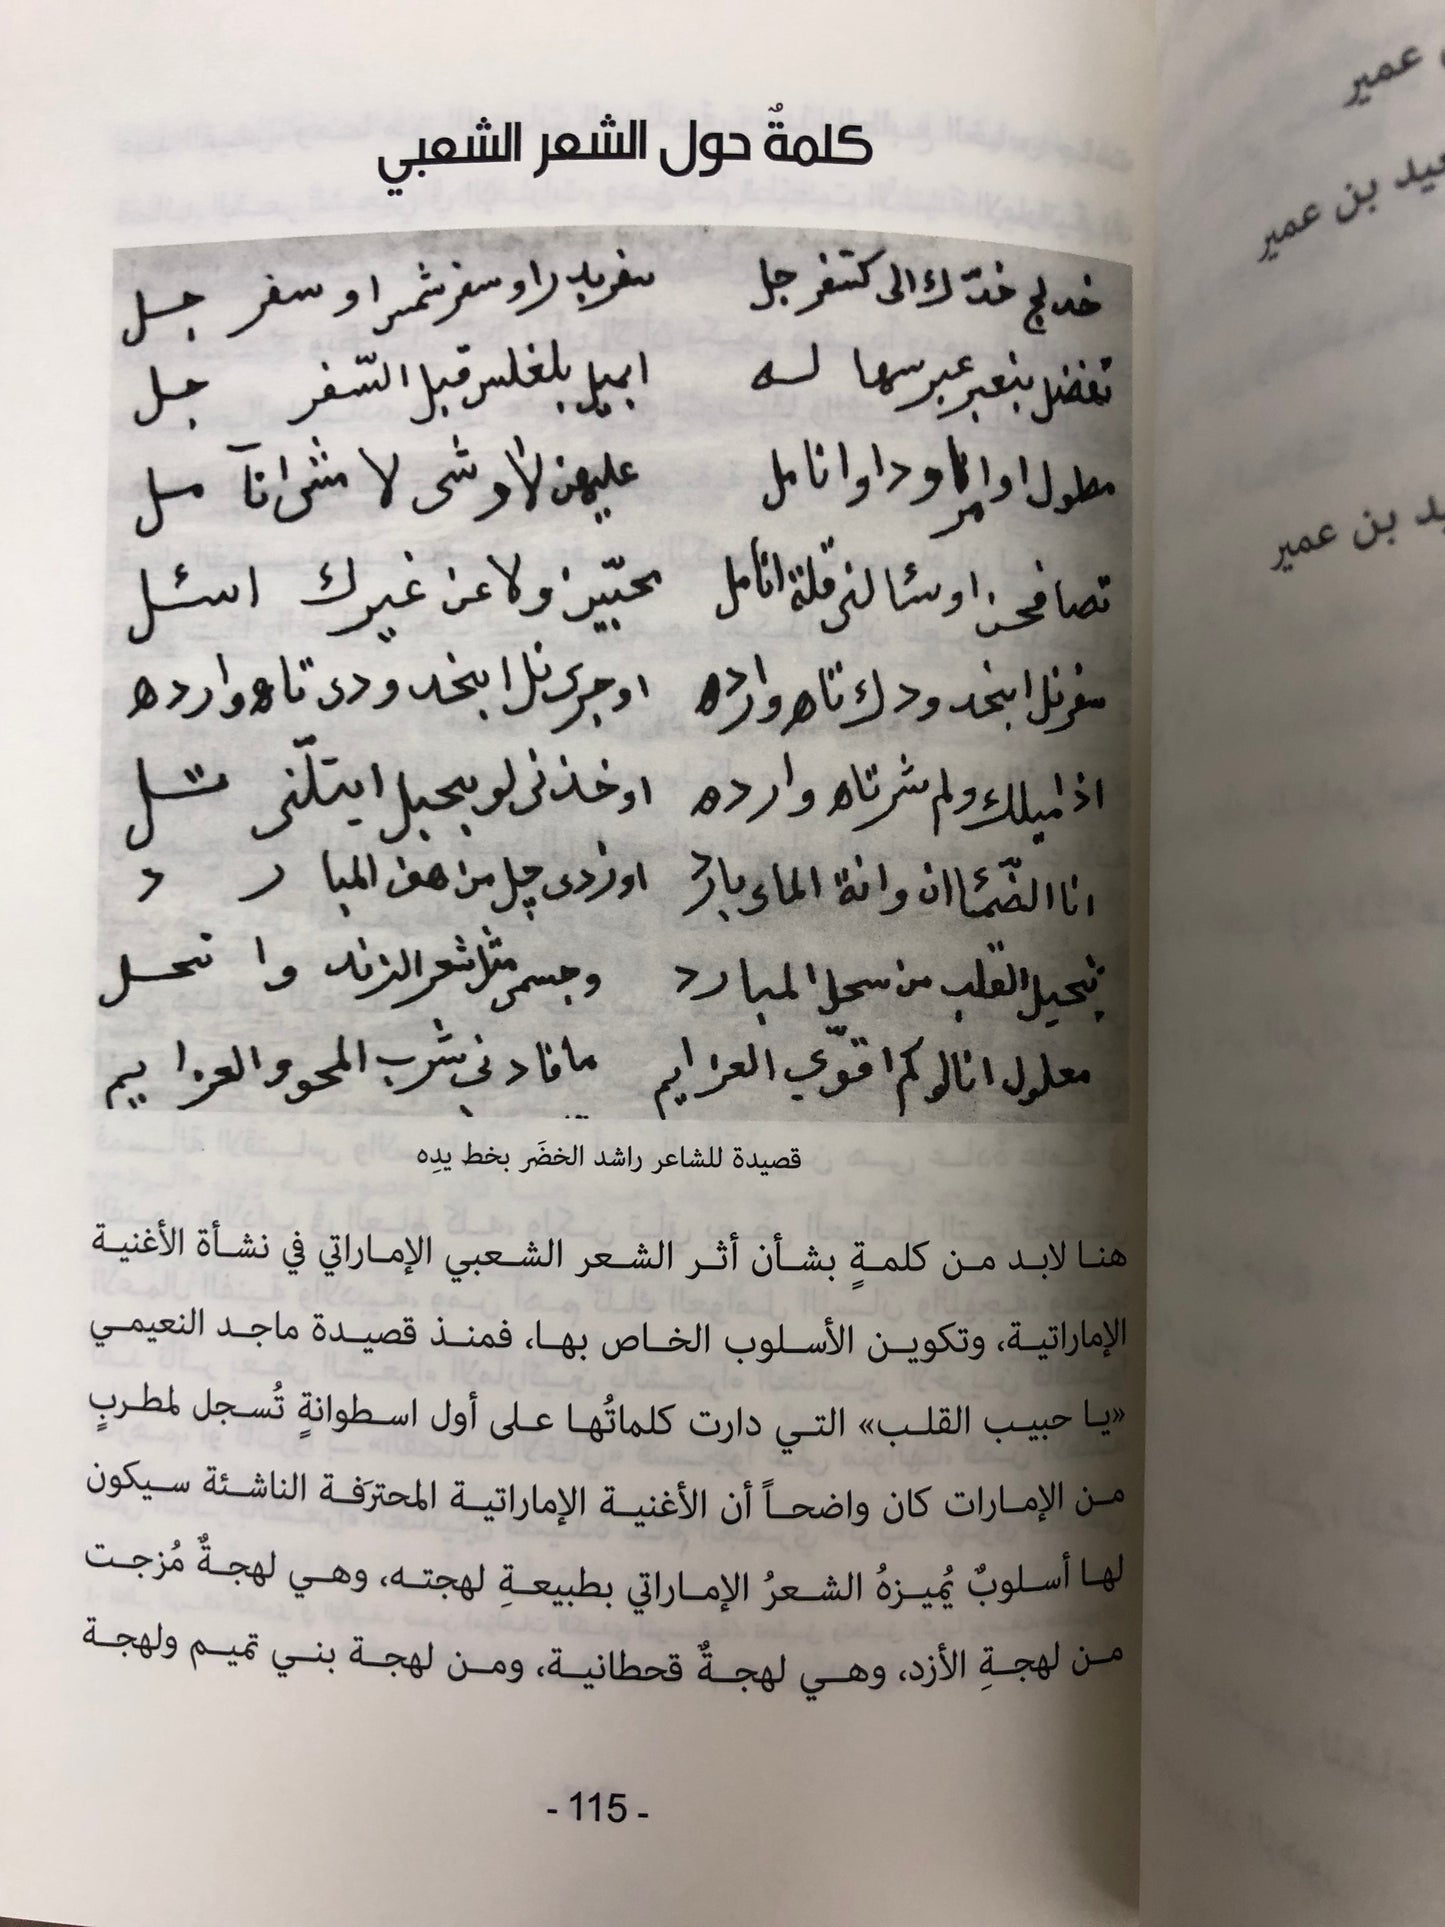 كلمةٌ حول الشعر الشعبي
خدلج خدّك الى كتنفر جل سفر بدر او سفر شمس او سفر جل
تفضل بنعبر عبر سها له ابميل بلغلس قبل السّفر جل
مطول او ودا وانا مل عليهن لا وشى لا مشى انآ مسل
تصافحن او سئالنى قلة انامل محبّين ولا عن غيرك اسئل
سفرنل ابنخد ودك تاه وارده او جرى نل ابنخد ودى تاه وارده
اذا ميلك ولم شرتاه وارده او خذنى لو بحبل ايتلّنى تل
انا الضّمئاان وانة الماى بارد اوزدى چل من هف المبا ر د
نحيل القلب من سحل المبارد وجسمى مثل شعر الزند وا نحل
معلول انا لو كم اقوّي العزايم مافادني شرب المحو والعزايم
قصيدة للشاعر راشد الخضَر بخط يدِه
هنا لابد من كلمةٍ بشأن أثر الشعر الشعبي الإماراتي في نشأة الأغنية
الإماراتية، وتكوين الأسلوب الخاص بها، فمنذ قصيدة ماجد النعيمي
«يا حبيب القلب» التي دارت كلماتُها على أول اسطوانةٍ تُسجل لمطربٍ
من الإمارات كان واضحاً أن الأغنية الإماراتية المحترَفة الناشئة سيكون
لها أسلوبٌ يُميزهُ الشعرُ الإماراتي بطبيعةِ لهجته، وهي لهجةٌ مُزجت
من لهجةِ الأزد، وهي لهجةٌ قحطانية، ومن لهجة بني تميم ولهجة
- 115 -
عمير
بن عمير
بن عمير